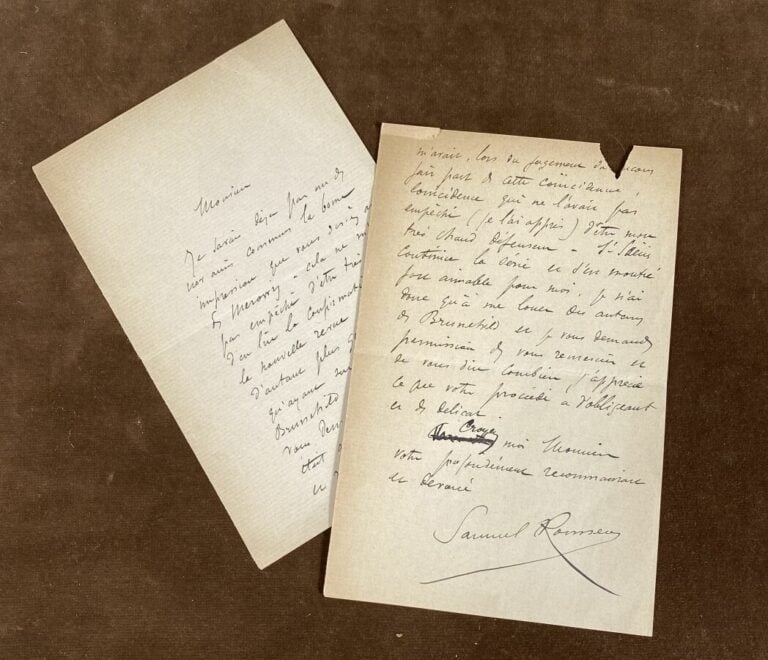 Monsieur
Je savais déjà par un de
nos amis communs la bonne
impression que vous
de Merowig cela ne
pas empêché d'être très
d'en lire la
la nouvelle revue
d'autant plus
qu'ayant
Brunehild
vous
était
et
m'avait, lors du jugement du
fait part de cette coïncidence,
Coïncidence qui ne l'avait pas
empêché (je l'ai appris) d'être mon
très chaud défenseur
Continue la série et s'est montré
fort aimable pour moi. Je n'ai
donc qu'à me louer des auteurs
de Brunehild et je vous demande
permission de vous remercier et
de vous dire combien j'apprécie
ce que votre procédé a d'obligeant
et de délicat.
Croyez moi Monsieur
votre profondément reconnaissant
et dévoué
Samuel Rousseau